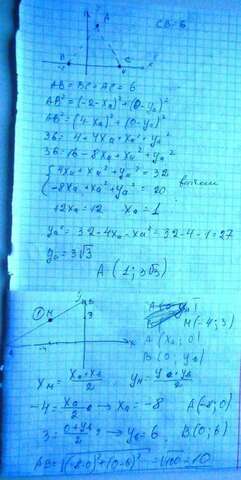 A
CB=6
B
C
AB=BC=AC=6
AB²=(-2-xₐ)²+(0-yₐ)²
AB²=(4-xₐ)²+(0-yₐ)²
36=4+4xₐ+xₐ²+yₐ²
36=16-8xₐ+xₐ²+yₐ²
4xₐ+xₐ²+yₐ²=32
-8xₐ+xₐ²+yₐ²=20
12xₐ=12 xₐ=1
yₐ²=32-4xₐ-xₐ²=32-4-1=27
yₐ=3√3
A(1;3√3)
M
B
3
-4
M(-4;3)
A(xₐ;0)
B(0;y_B)
x_M=(xₐ+x_B)/2 y_M=(yₐ+y_B)/2
-4=xₐ/2 → xₐ=-8 A(-8;0)
3=(0+y_B)/2 → y_B=6 B(0;6)
AB=√((-8-0)²+(0-6)²)=√100=10